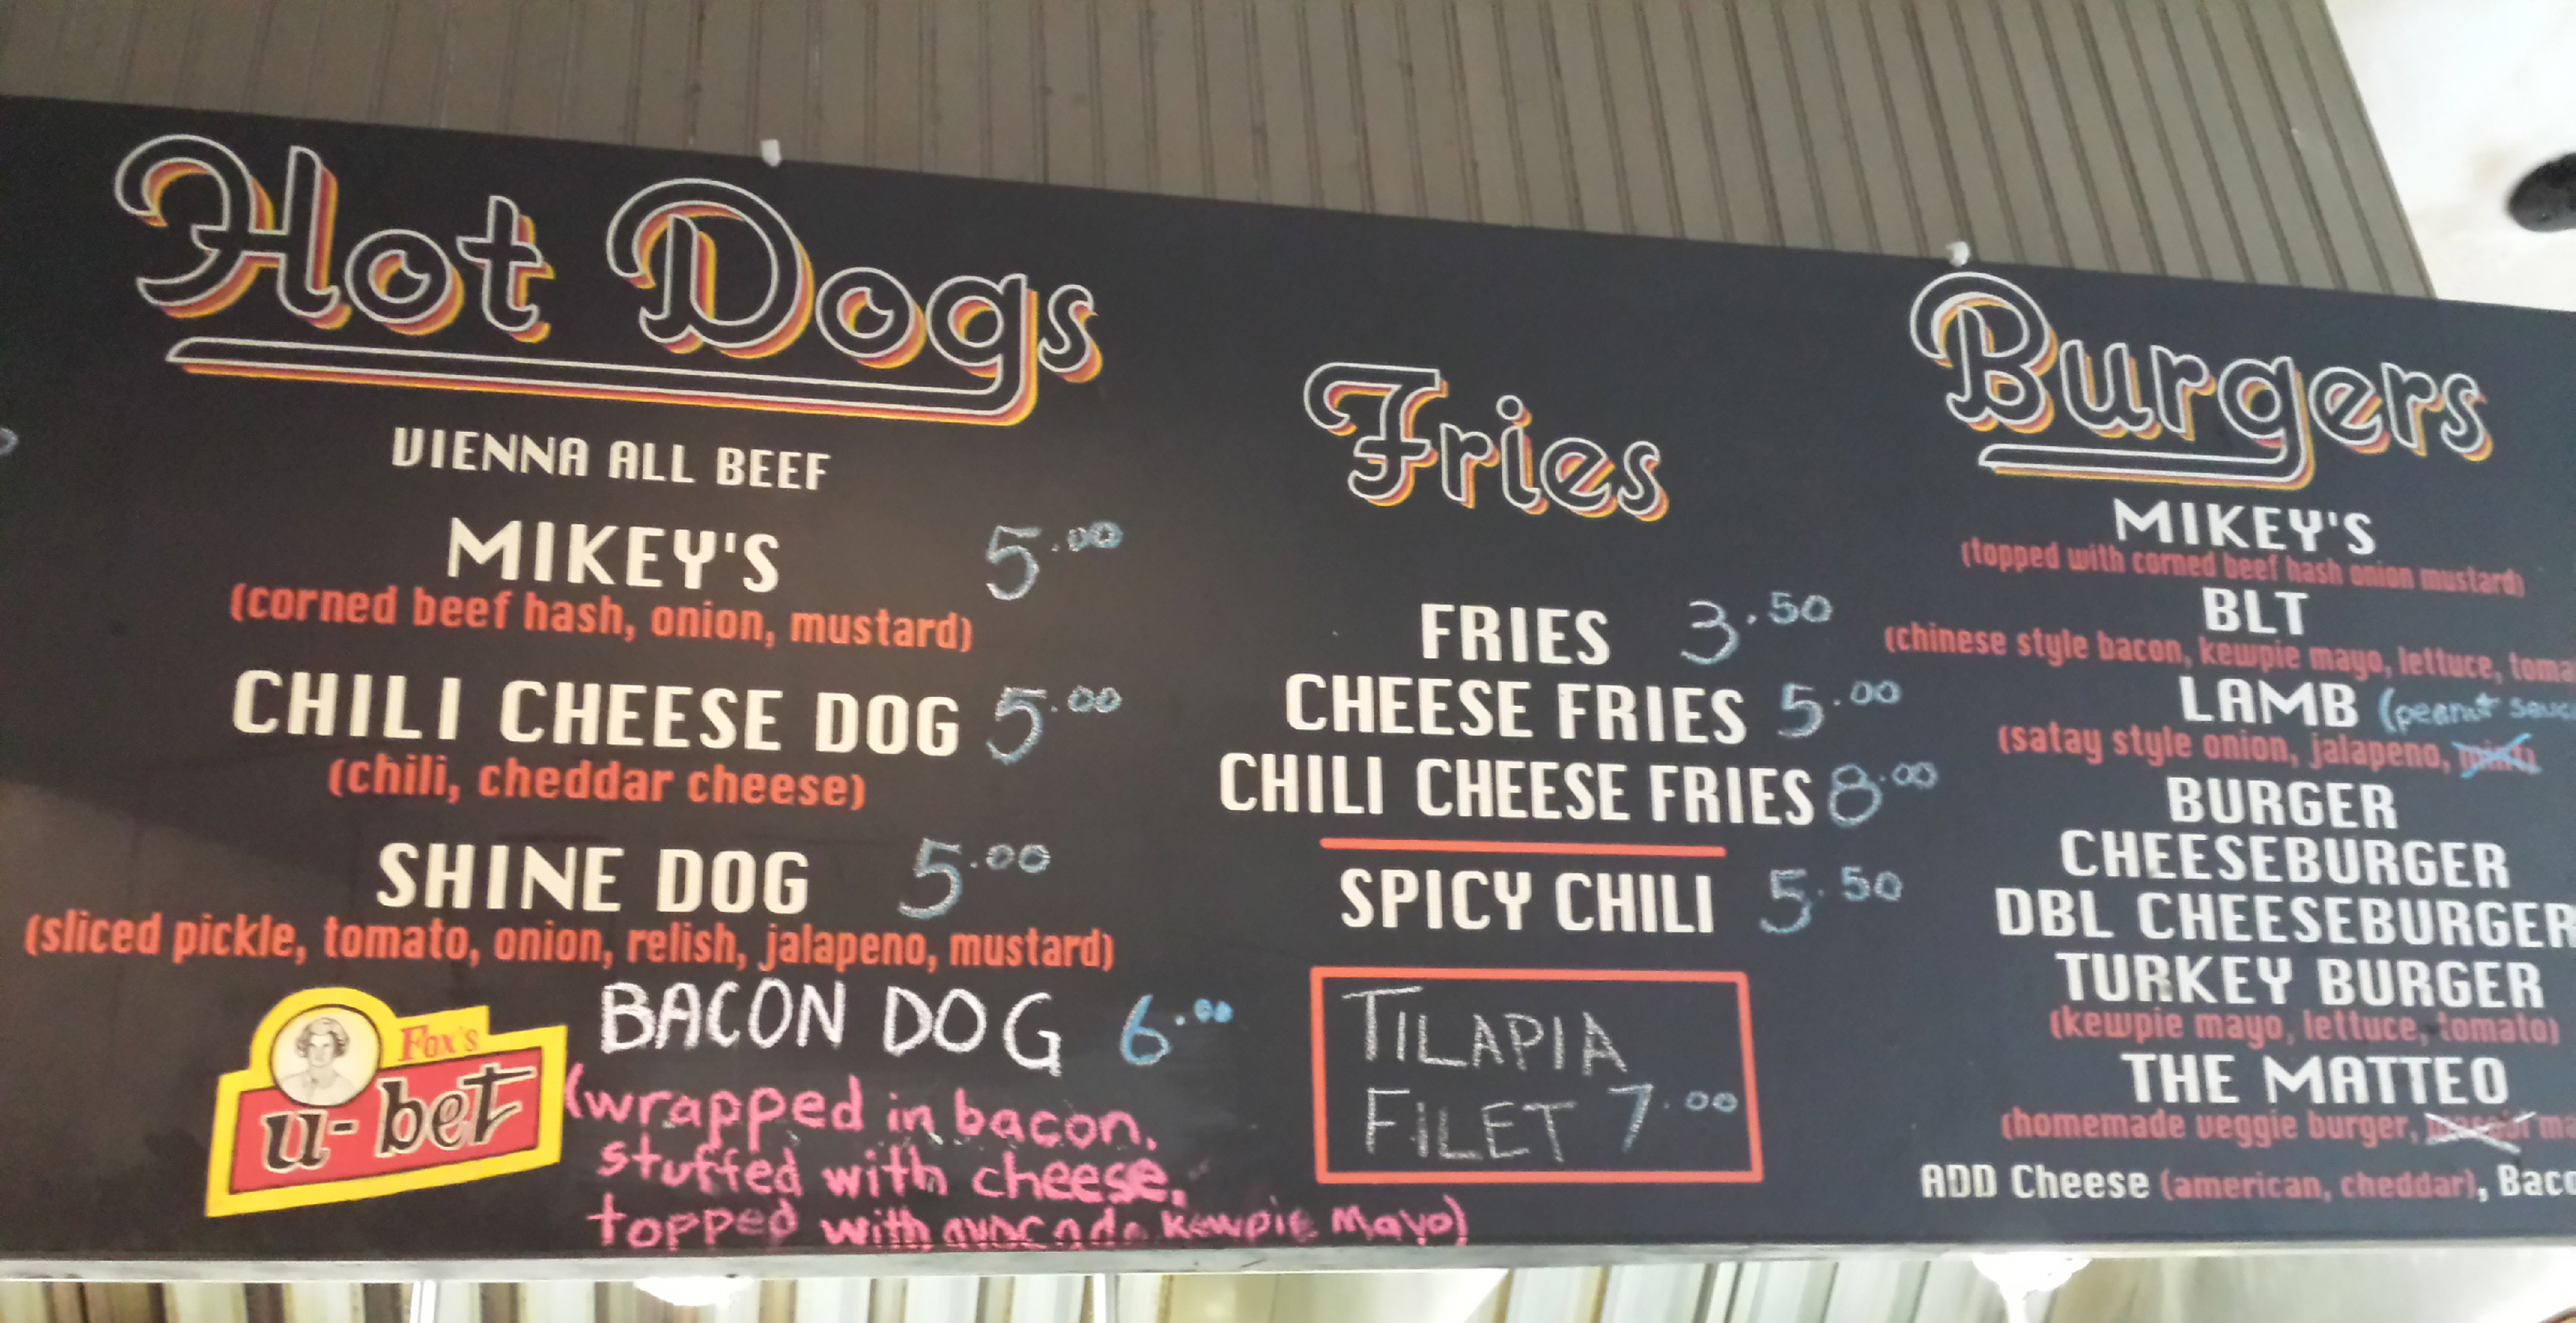 Hot Dogs
VIENNA ALL BEEF
MIKEY'S 5.00
(corned beef hash, onion, mustard)
CHILI CHEESE DOG 5.00
(chili, cheddar cheese)
SHINE DOG 5.00
(sliced pickle, tomato, onion, relish, jalapeno, mustard)
BACON DOG 6.00
(wrapped in bacon,
stuffed with cheese,
topped with avocado kewpie Mayo)
Fox's
u-bet
Fries
FRIES 3.50
CHEESE FRIES 5.00
CHILI CHEESE FRIES 8.00
SPICY CHILI 5.50
TILAPIA
FILET 7.00
Burgers
MIKEY'S
(topped with corned beef hash onion mustard)
BLT
(chinese style bacon, kewpie mayo, lettuce, toma
LAMB (peanut sauc
(satay style onion, jalapeno, mint)
BURGER
CHEESEBURGER
DBL CHEESEBURGER
TURKEY BURGER
(kewpie mayo, lettuce, tomato)
THE MATTEO
(homemade veggie burger, ma
ADD Cheese (american, cheddar), Baco